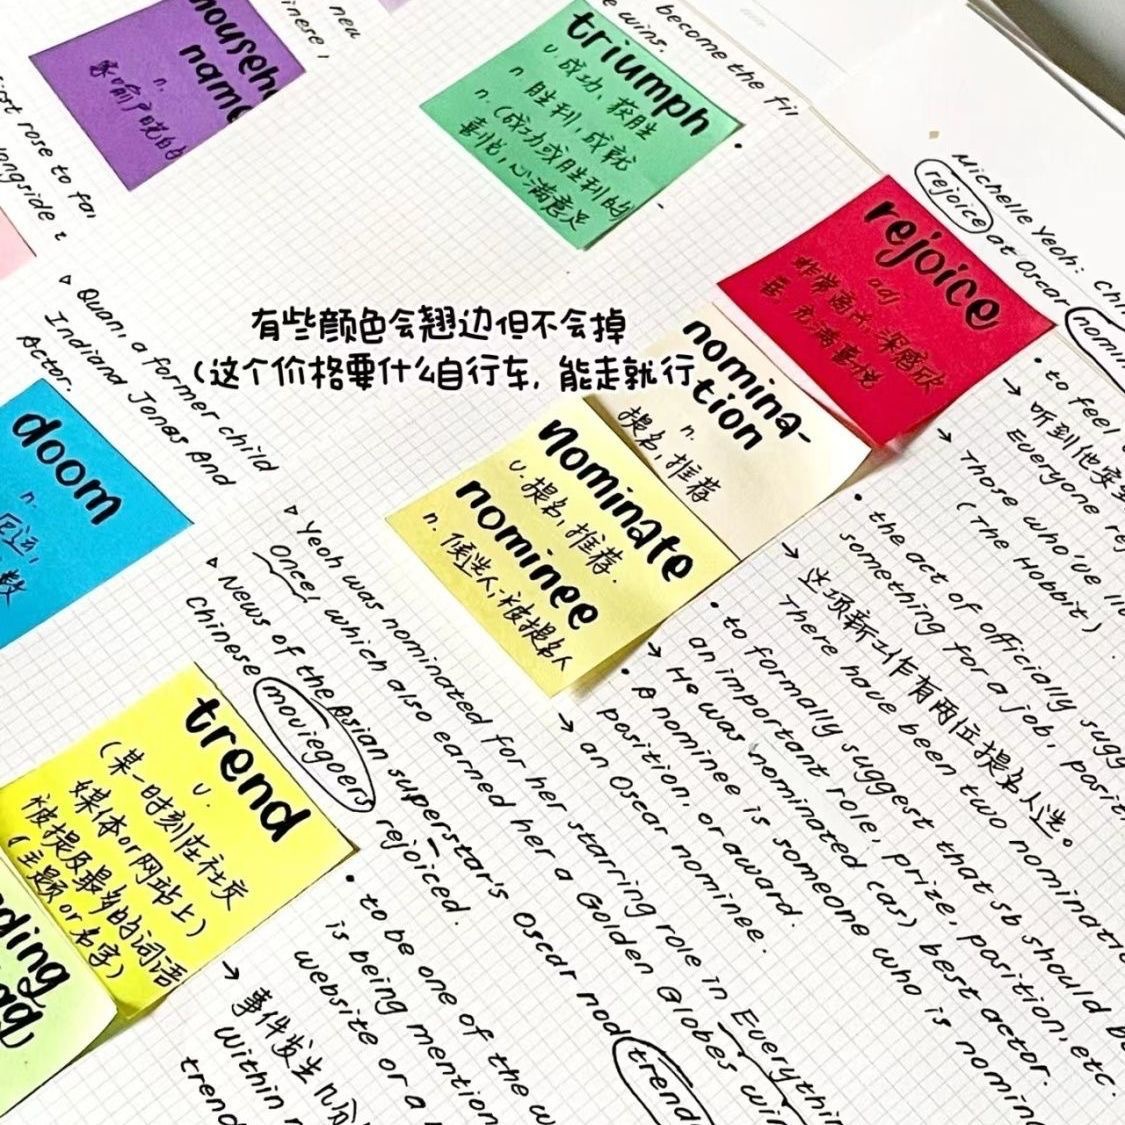 new
household
name
n.
家喻户晓的
become the
e wins.
triumph
v. 成功，获胜
n 胜利，成就
n. (成功或胜利的
喜悦，心满意足
irst rose to
longside
Michelle Yeoh:
rejoice at Oscar
rejoice
adj
非常高兴，深感欣
喜，充满喜悦
有些颜色会翘边但不会掉
(这个价格要什么自行车, 能走就行
nomina-
tion
n.
提名，推荐
Nominate
v. 提名，推荐.
nominee
n. 候选人；被提名人
Quan, a former child
Indiana Jones And
Actor.
doom
n.
厄运,
数
• to feel
→ 听到他安
Everyone
→ Those who've
(The Hobbit)
• the act of officially
something for a job, position
→ 这项新工作有两位提名人选。
There have been two
• to formally suggest that sb should
an important role, prize, position, etc.
→ He was nominated (as) best actor.
• A nominee is someone who is
position, or award.
→ an Oscar nominee.
Yeoh was nominated for her starring role in Everything
Once, which also earned her a Golden Globes
News of the Asian superstar's Oscar nod trend
Chinese moviegoers rejoiced.
trend
v.
(某一时刻在社交
媒体or网站上)
被提及最多的词语
(主题or名字)
• to be one of the
is being mention
website or a
→ 事件发生几分
Within
trend